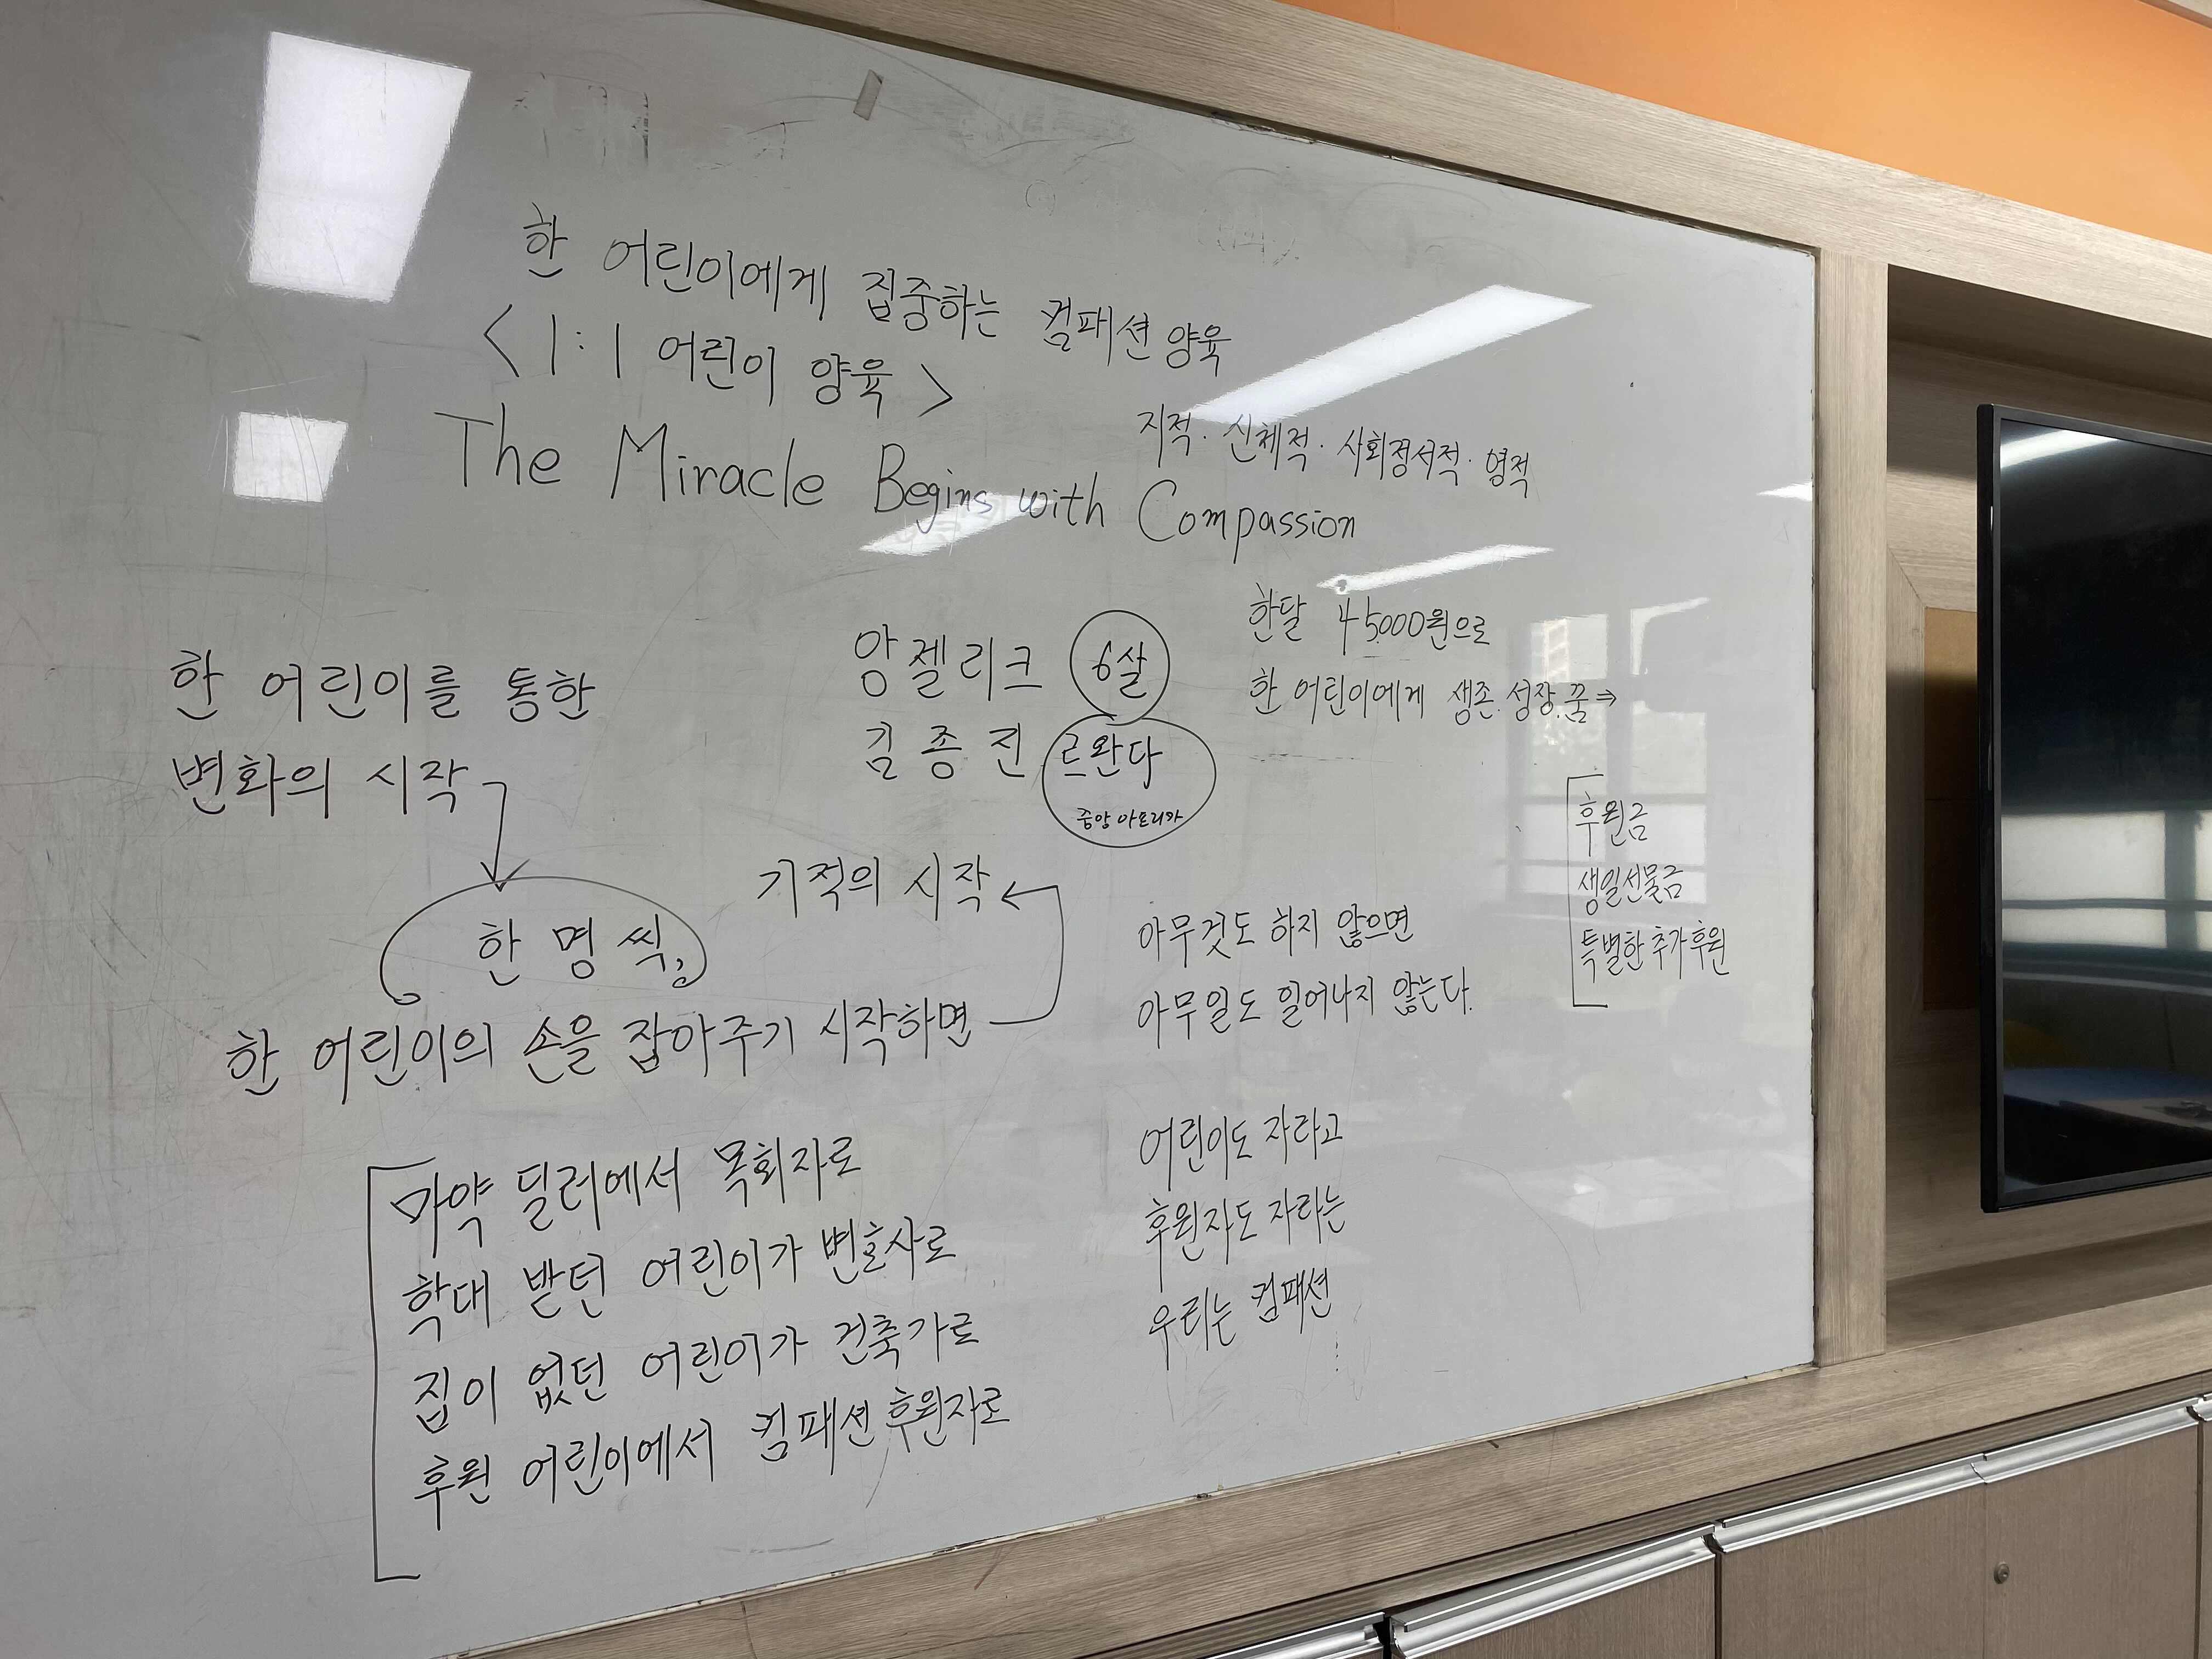 한 어린이에게 집중하는 컴패션 양육
<1:1 어린이 양육>
지적·신체적·사회정서적·영적
The Miracle Begins with Compassion
한 어린이를 통한
변화의 시작
한 명씩,
한 어린이의 손을 잡아주기 시작하면
기적의 시작
앙젤리크 6살
김종진 르완다
중앙 아프리카
한달 45000원으로
한 어린이에게 생존.성장.꿈⇒
후원금
생일선물금
특별한 추가후원
아무것도 하지 않으면
아무일도 일어나지 않는다.
마약 딜러에서 목회자로
학대 받던 어린이가 변호사로
집이 없던 어린이가 건축가로
후원 어린이에서 컴패션 후원자로
어린이도 자라고
후원자도 자라는
우리는 컴패션